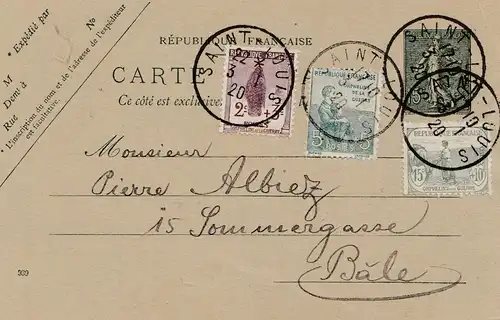 * Expédié par
N°
M
Demt à
Rue
* L'inscription du nom et de l'adresse de l'expéditeur
est facultative.
RÉPUBLIQUE FRANÇAISE
CARTE
Ce côté est exclusive
SAINT-LOUIS
22
3
20
SAINT-LOUIS
SAINT-LOUIS
20
SAINT-LOUIS
20
2c +3c
RÉPUBLIQUE FRANÇAISE
ORPHELINS
DE LA
GUERRE
5c 5c
POSTES
15
RÉPUBLIQUE FRANÇAISE
15c +10c
ORPHELINS DE LA GUERRE
Monsieur
Pierre Albiez
15 Sommergasse
Bâle
939